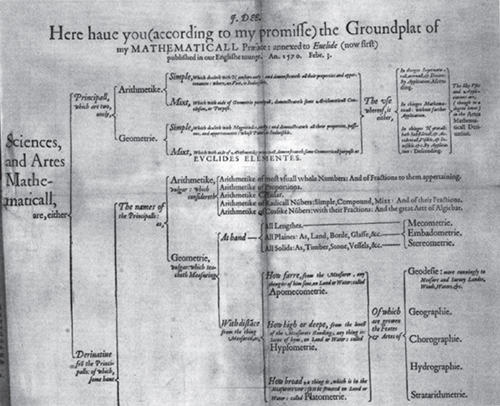 J. DEE.
Here haue you (according to my promisse) the Groundplat of
my MATHEMATICALL Præface: annexed to Euclide (now first)
published in our Englishe tounge. An. 1570. Febr. 3.
Sciences,
and Artes
Mathe-
maticall,
are, either
Principall,
which are two,
onely,
Arithmetike.
Simple, which dealeth with Numbers onely: and demonstrateth all their properties and appertenances: where, an Vnit, is
Mixt, which with aide of Geometrie principall, demonstrateth some Arithmeticall Conclusion, or Purpose.
Geometrie.
Simple, which dealeth with Magnitudes, onely: and demonstrateth all their properties, passions, and appertenances: whose Point, is Indiuisible.
Mixt, which with aide of Arithmetike principall, demonstrateth some Geometricall purpose; as
EVCLIDES ELEMENTES.
The vse
whereof, is
either,
In thinges Mathematicall: without farther Application.
The names of
the Principalls:
as,
Arithmetike,
vulgar: which
considereth
Arithmetike of most vsuall whole Numbers: And of Fractions to them appertaining.
Arithmetike of Proportions.
Arithmetike Circular.
Arithmetike of Radicall Nũbers: Simple, Compound, Mixt: And of their Fractions.
Arithmetike of Cossike Nũbers: with their Fractions: And the great Arte of Algiebar.
Geometrie,
vulgar: which teacheth Measuring
At hand
All Lengthes.
Mecometrie.
All Plaines: As, Land, Borde, Glasse, &c.
Embadometrie.
All Solids: As, Timber, Stone, Vessels, &c.
Stereometrie.
With distãce
from the thing
Measured,
How farre, from the Measurer, any
thing is: of him sene, on Land or Water: called
Apomecometrie.
How high or deepe, from the leuell
of the Measurers standing, any thing is:
Seene of hym, on Land or Water: called
Hypsometrie.
How broad, a thing is, which is in the
Measurers vew: so it be situated on Land or
Water: called Platometrie.
Of which
are growen
the Feates
& Artes of
Geodesie: more cunningly to
Measure and Suruey Landes,
Woods, Waters, &c.
Geographie.
Chorographie.
Hydrographie.
Stratarithmetrie.
Deriuatiue
frõ the Princi-
palls: of which,
some haue